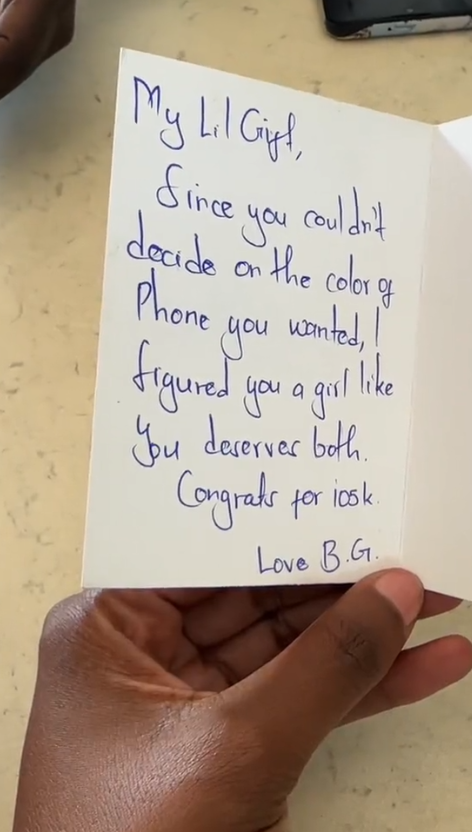 My Lil Gift,
Since you couldn't
decide on the color of
Phone you wanted, I
figured you a girl like
You deserves both.
Congrats for 105k.
Love B.G.